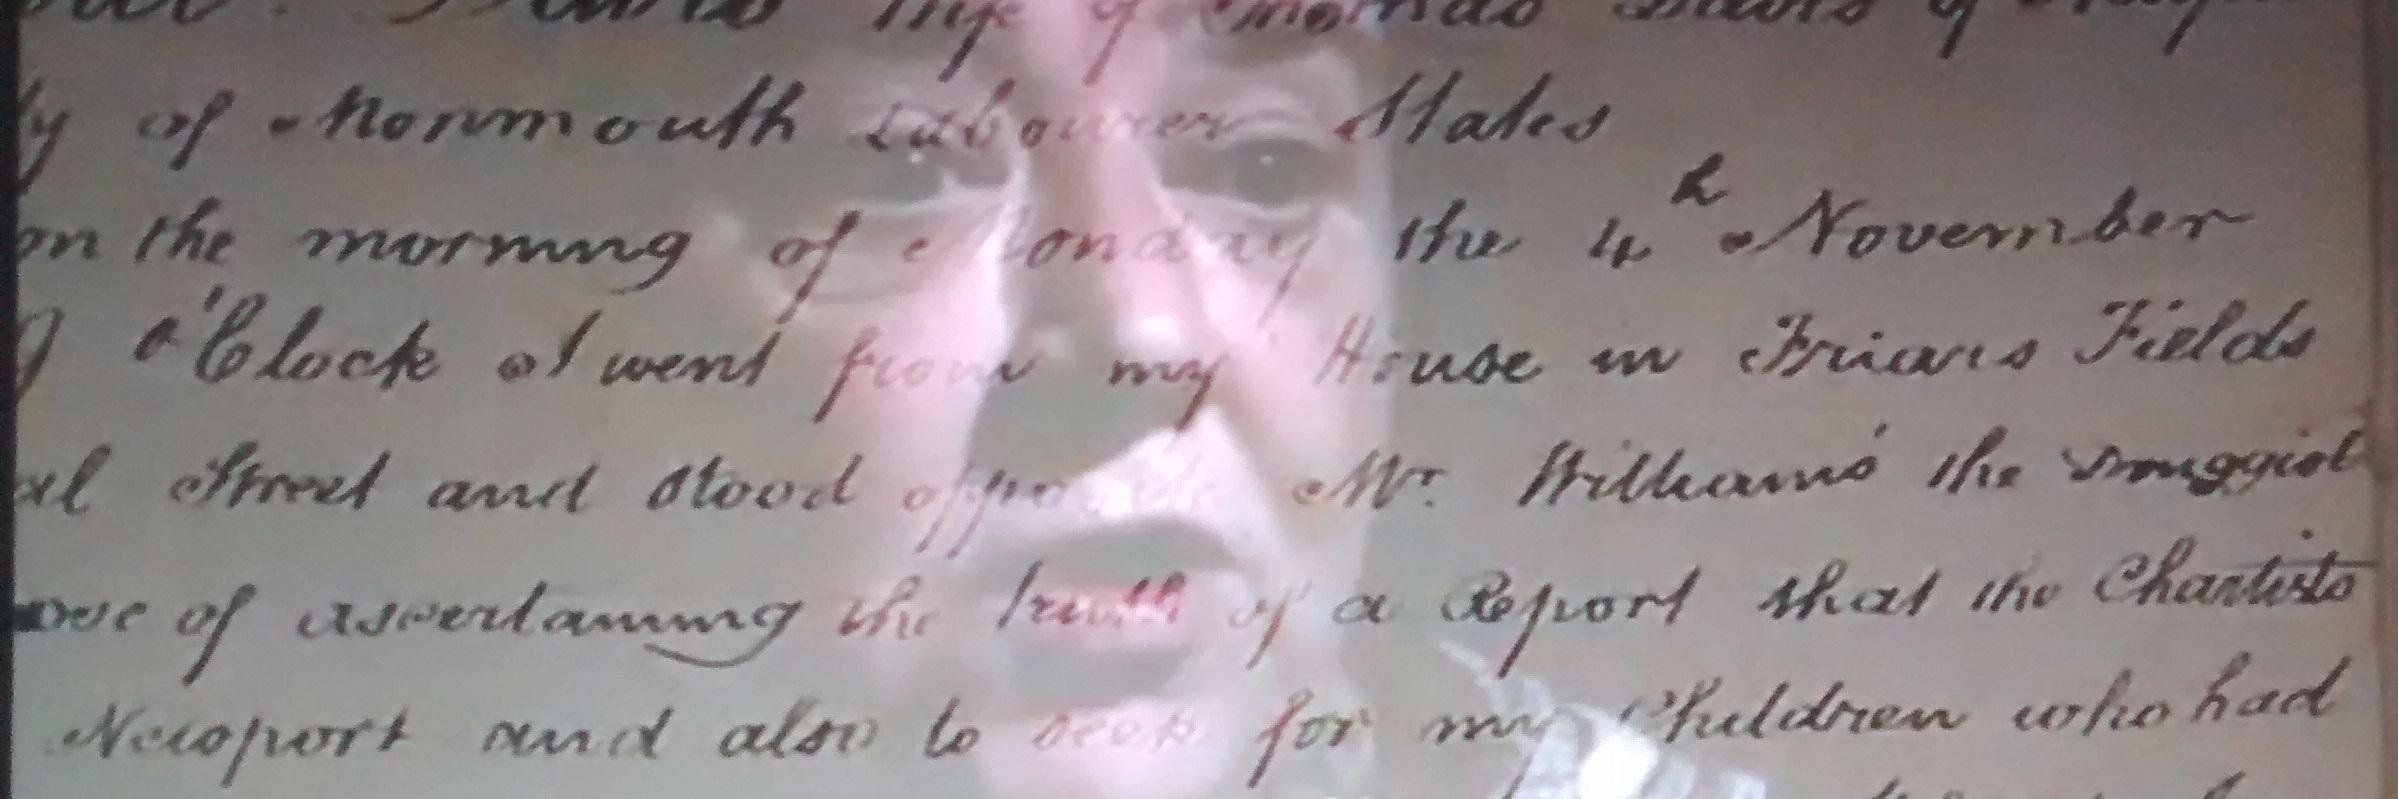 wife of Thomas Davis of
ty of Monmouth Labourer States
on the morning of Monday the 4th November
o'Clock I went from my House in Friars Fields
Street and stood opposite Mr. Williams' the Druggist
of ascertaining the truth of a Report that the Chartists
Newport and also to seek for my Children who had